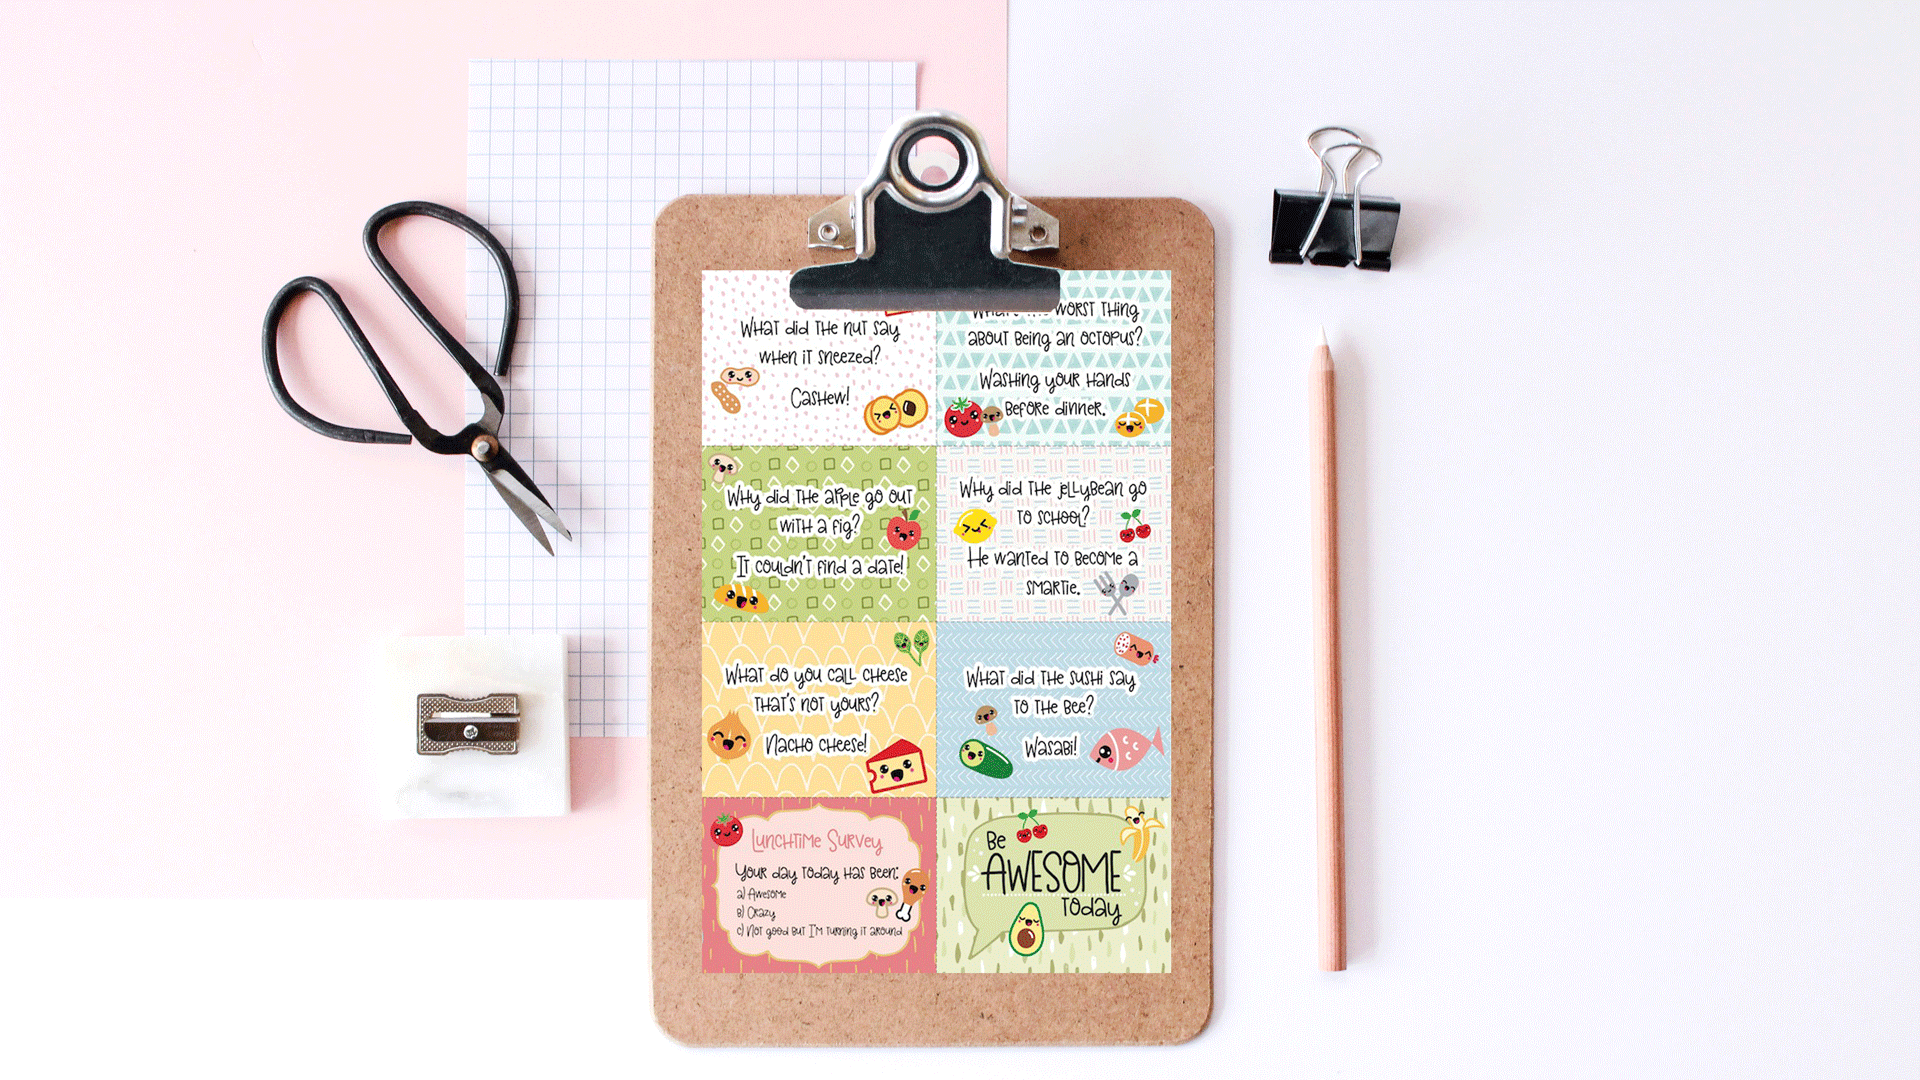 What did the nut say
when it sneezed?
Cashew!
worst thing
about being an octopus?
Washing your hands
before dinner.
Why did the apple go out
with a fig?
It couldn't find a date!
Why did the jellybean go
to school?
He wanted to become a
smartie.
What do you call cheese
that's not yours?
Nacho cheese!
What did the sushi say
to the bee?
Wasabi!
Lunchtime Survey
Your day today has been:
a) Awesome
b) Crazy
c) Not good but I'm turning it around
Be
AWESOME
Today